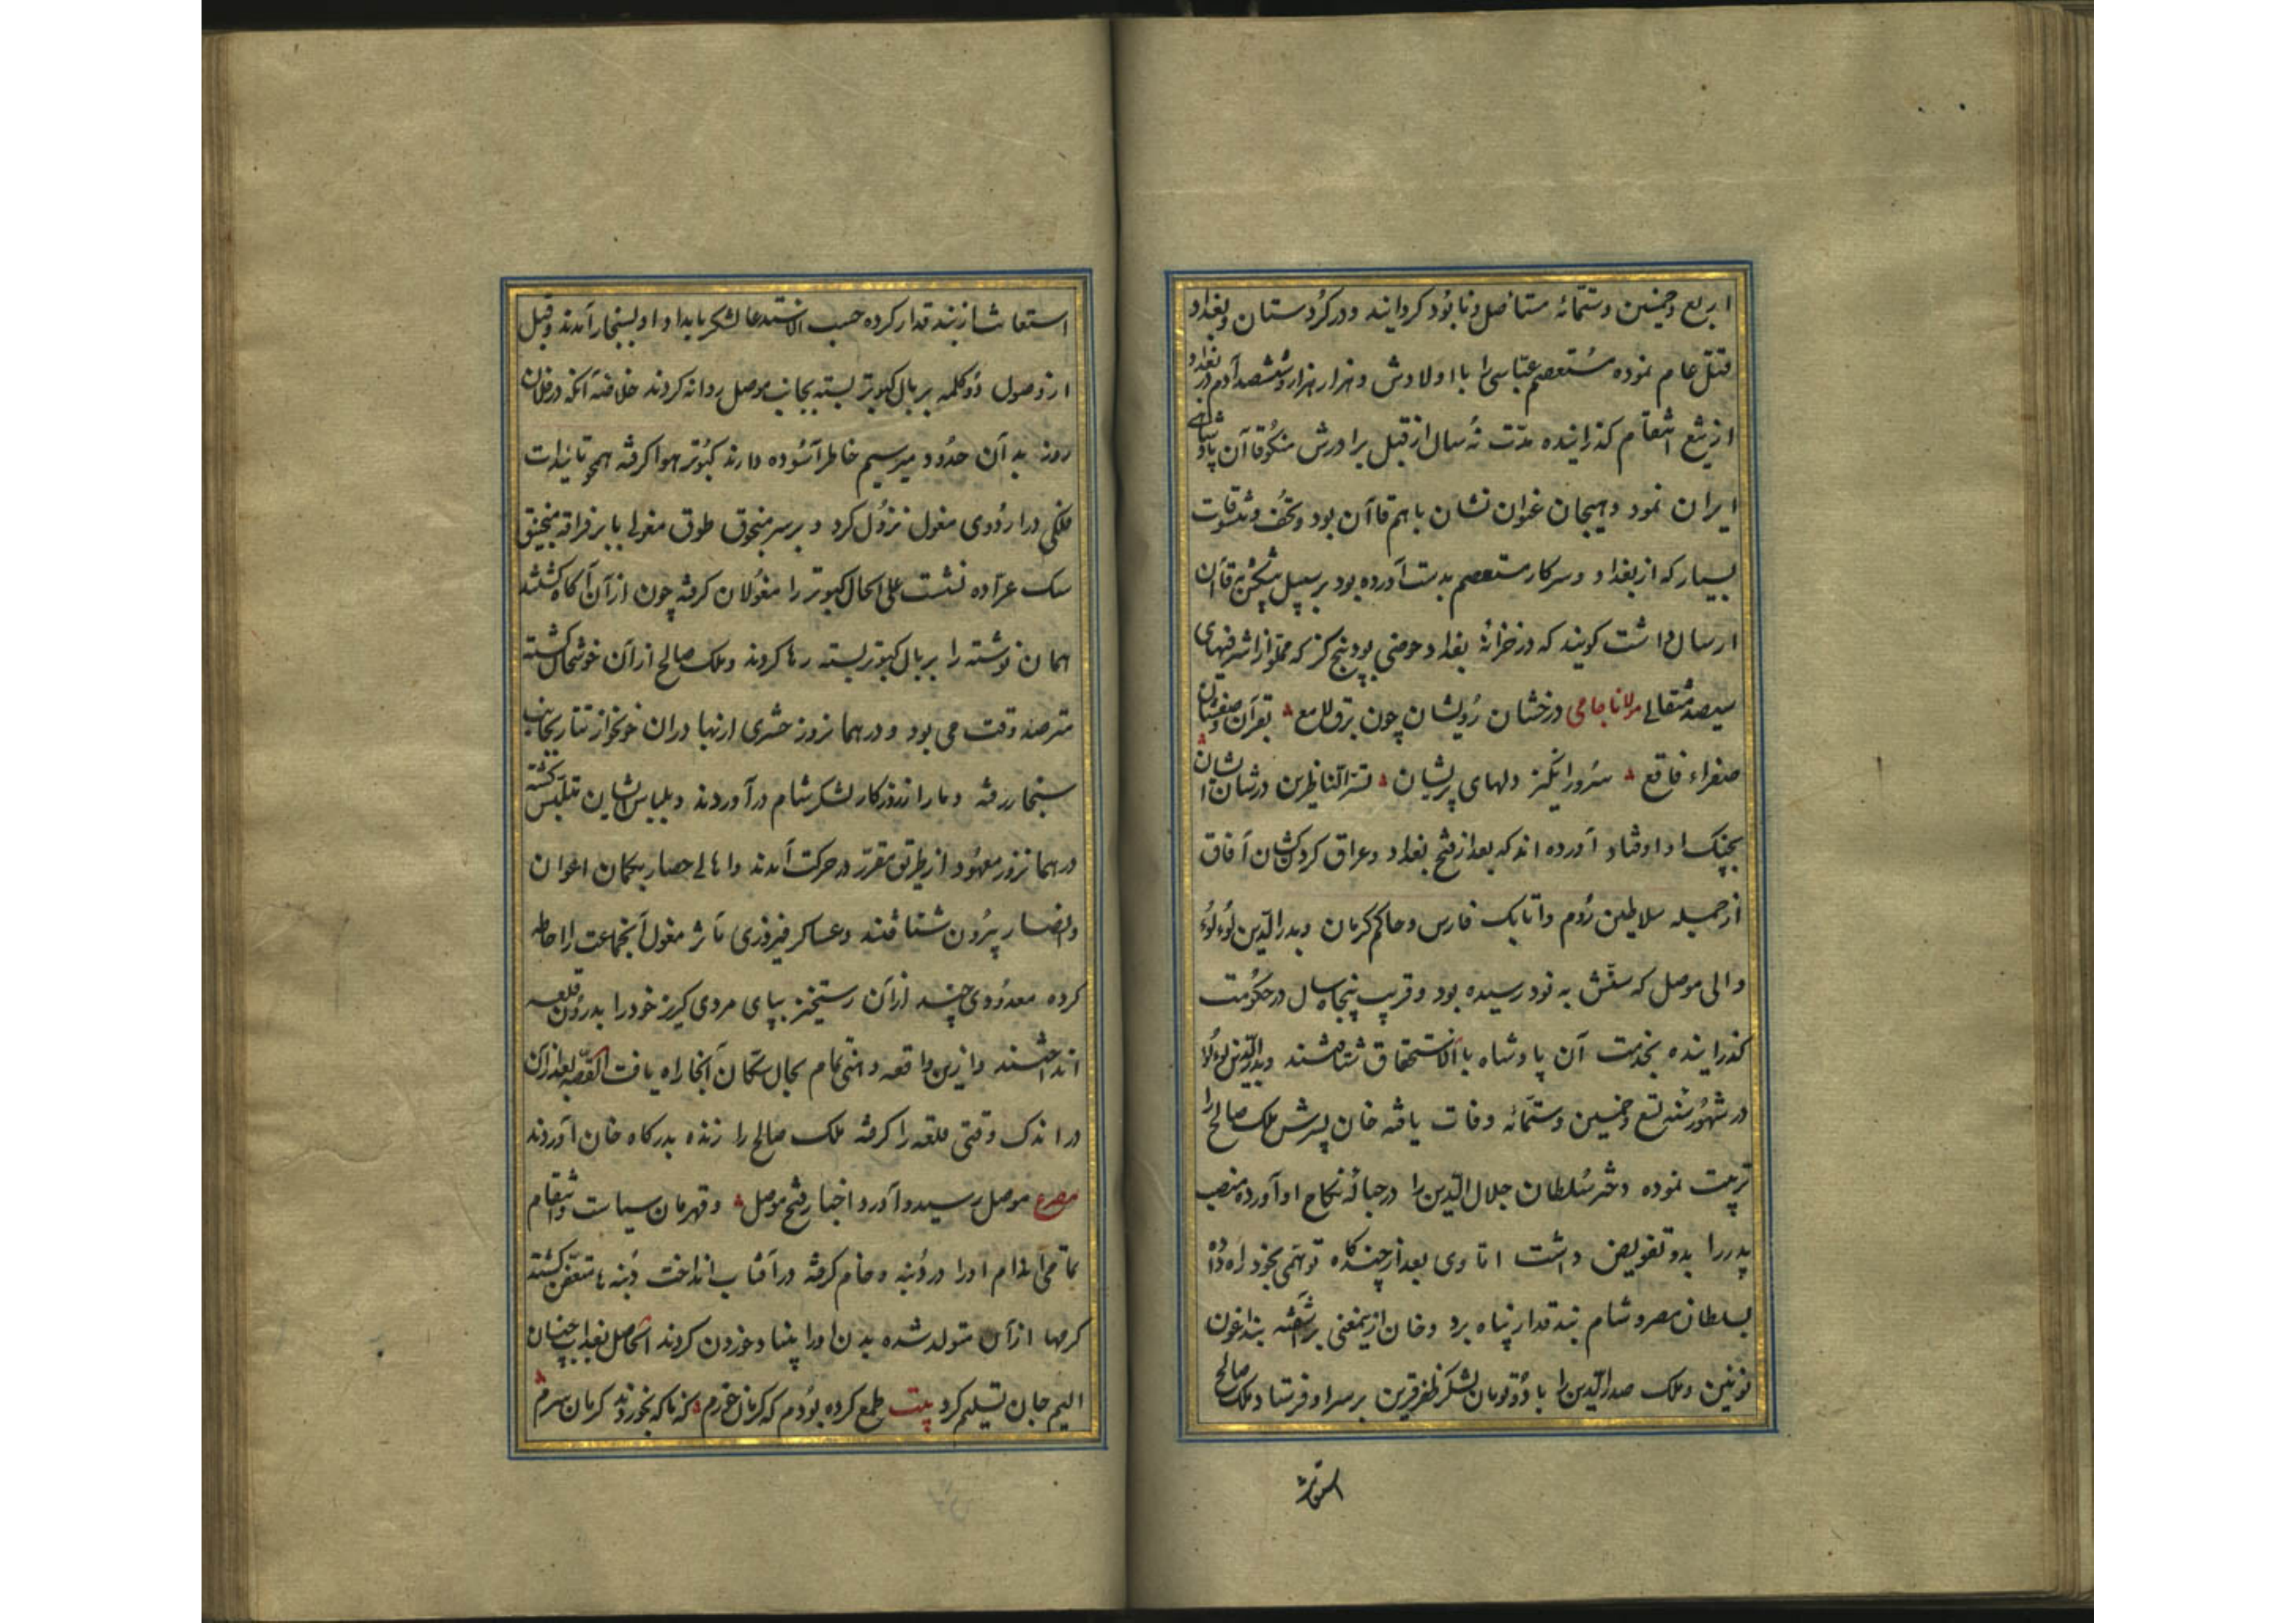 اربع وخمسین وستمائه مستاصل ونابود کردانید ودر کردستان وبغداد
قتل عام نموده مستعصم عباسی را با اولادش وهزار هزار وششصد آدم در بغداد
از تیغ انتقام کذرانیده مدّت نُه سال از قبل برادرش منکوقاآن پادشاهی
ایران نمود وهیجان عنوان نشان باهم قاآن بود وتحف وتنسوقات
بسیار که از بغداد وسرکار مستعصم بدست آورده بود بر سبیل پیشکش بقاآن
ارسال داشت کویند که در خزانهٔ بغداد حوضی بود پنج کز که مملو از اشرفیهای
سیصد مثقالی مولانا جامی درخشان رویشان چون برق لامع بقرآن وصفشان
صفراء فاقع سرور انکیز دلهای پریشان تسرّ الناظرین در شان ایشان
بچنک او اوفتاد آورده اند که بعد از فتح بغداد وعراق کردنکشان آفاق
از جمله سلاطین روم واتابک فارس وحاکم کرمان وبدر الدّین لُوءلُوء
والی موصل که سنّش به نود رسیده بود وقریب پنجاه سال در حکومت
کذرانیده بخدمت آن پادشاه بالاستحقاق شتافتند وبدر الدّین لوءلوء
در شهور سنه تسع وخمسین وستمّائه وفات یافته خان پسرش ملک صالح را
تربیت نموده دختر سُلطان جلال الدّین را در حبالهٔ نکاح او آورده منصب
پدر را بدو تفویض داشت امّا وی بعد از چند کاه توهمی بخود راه داده
بسلطان مصر وشام بندقدار پناه برد وخان ازین معنی برآشفته بنداغون
نوئین وملک صدر الدّین را با دو تومان لشکر ظفر قرین بر سر او فرستاد وملک صالح
استغاثه
استغاثه از بندقدار کرده حسب الاستدعا لشکر بامداد او بسنجار آمدند وقبل
از وصول دو کلمه بر بال کبوتر بسته بجانب موصل روانه کردند خلاصه آنکه در فلان
روز بدآن حدود میرسیم خاطر آسوده دارند کبوتر هوا کرفته همچو تاثیرات
فلکی در اردوی مغول نزول کرد وبر سر منجوق طوق مغولی یا بر فراقه منجنیق
سنک عرّاده نشست علی الحال کبوتر را مغولان کرفته چون از آن آکاه کشتند
همان نوشته را بر بال کبوتر بسته رها کردند وملک صالح از آن خوشحال کشته
مترصد وقت می بود ودر همانروز حشری از بهادران خونخوار تتار بجانب
سنجار رفته دمار از روزکار لشکر شام درآوردند وبلباس ایشان متلبس کشته
در همانروز معهود از طریق مقرّر در حرکت آمدند واهالی حصار بکمان اعوان
وانصار بیرون شتافتند وعساکر فیروزی مآثر مغول آنجماعت را احاطه
کرده معدودی چند از آن رستخیز بپای مردی کریز خود را بدرون قلعه
انداختند وازین واقعه وهنی تمام بحال سکّان آنجا راه یافت القصّه بعد از آن
در اندک وقتی قلعه را کرفته ملک صالح را زنده بدرکاه خان آوردند
مصرع موصل رسید وآورد اخبار فتح موصل وقهرمان سیاست وانتقام
تمامی اندام او را در دُنبه وخام کرفته در آفتاب انداخت دُنبه ها متعفن کشته
کرمها از آن متولد شده بدن او را بنیاد خوردن کردند الحاصل بعذاب چنان
الیم جان تسلیم کرد بیت طمع کرده بودم که کرمان خورم که ناکه بخوردند کرمان سرم